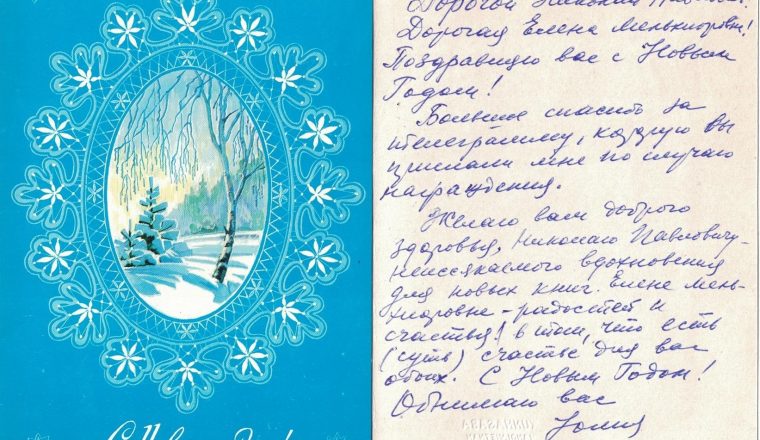 Дорогой Николай
Дорогая Елена Мелькиоровна!
Поздравляю вас с Новым
Годом!
Большое спасибо за
телеграмму, которую вы
прислали мне по случаю
награждения.
Желаю вам доброго
здоровья, Николаю Павловичу –
неиссякаемого вдохновения
для новых книг. Елене Мель-
хиоровне – радостей и
счастья! в том, что есть
(суть) счастье для вас
обоих. С Новым Годом!
Обнимаю вас
Юлия